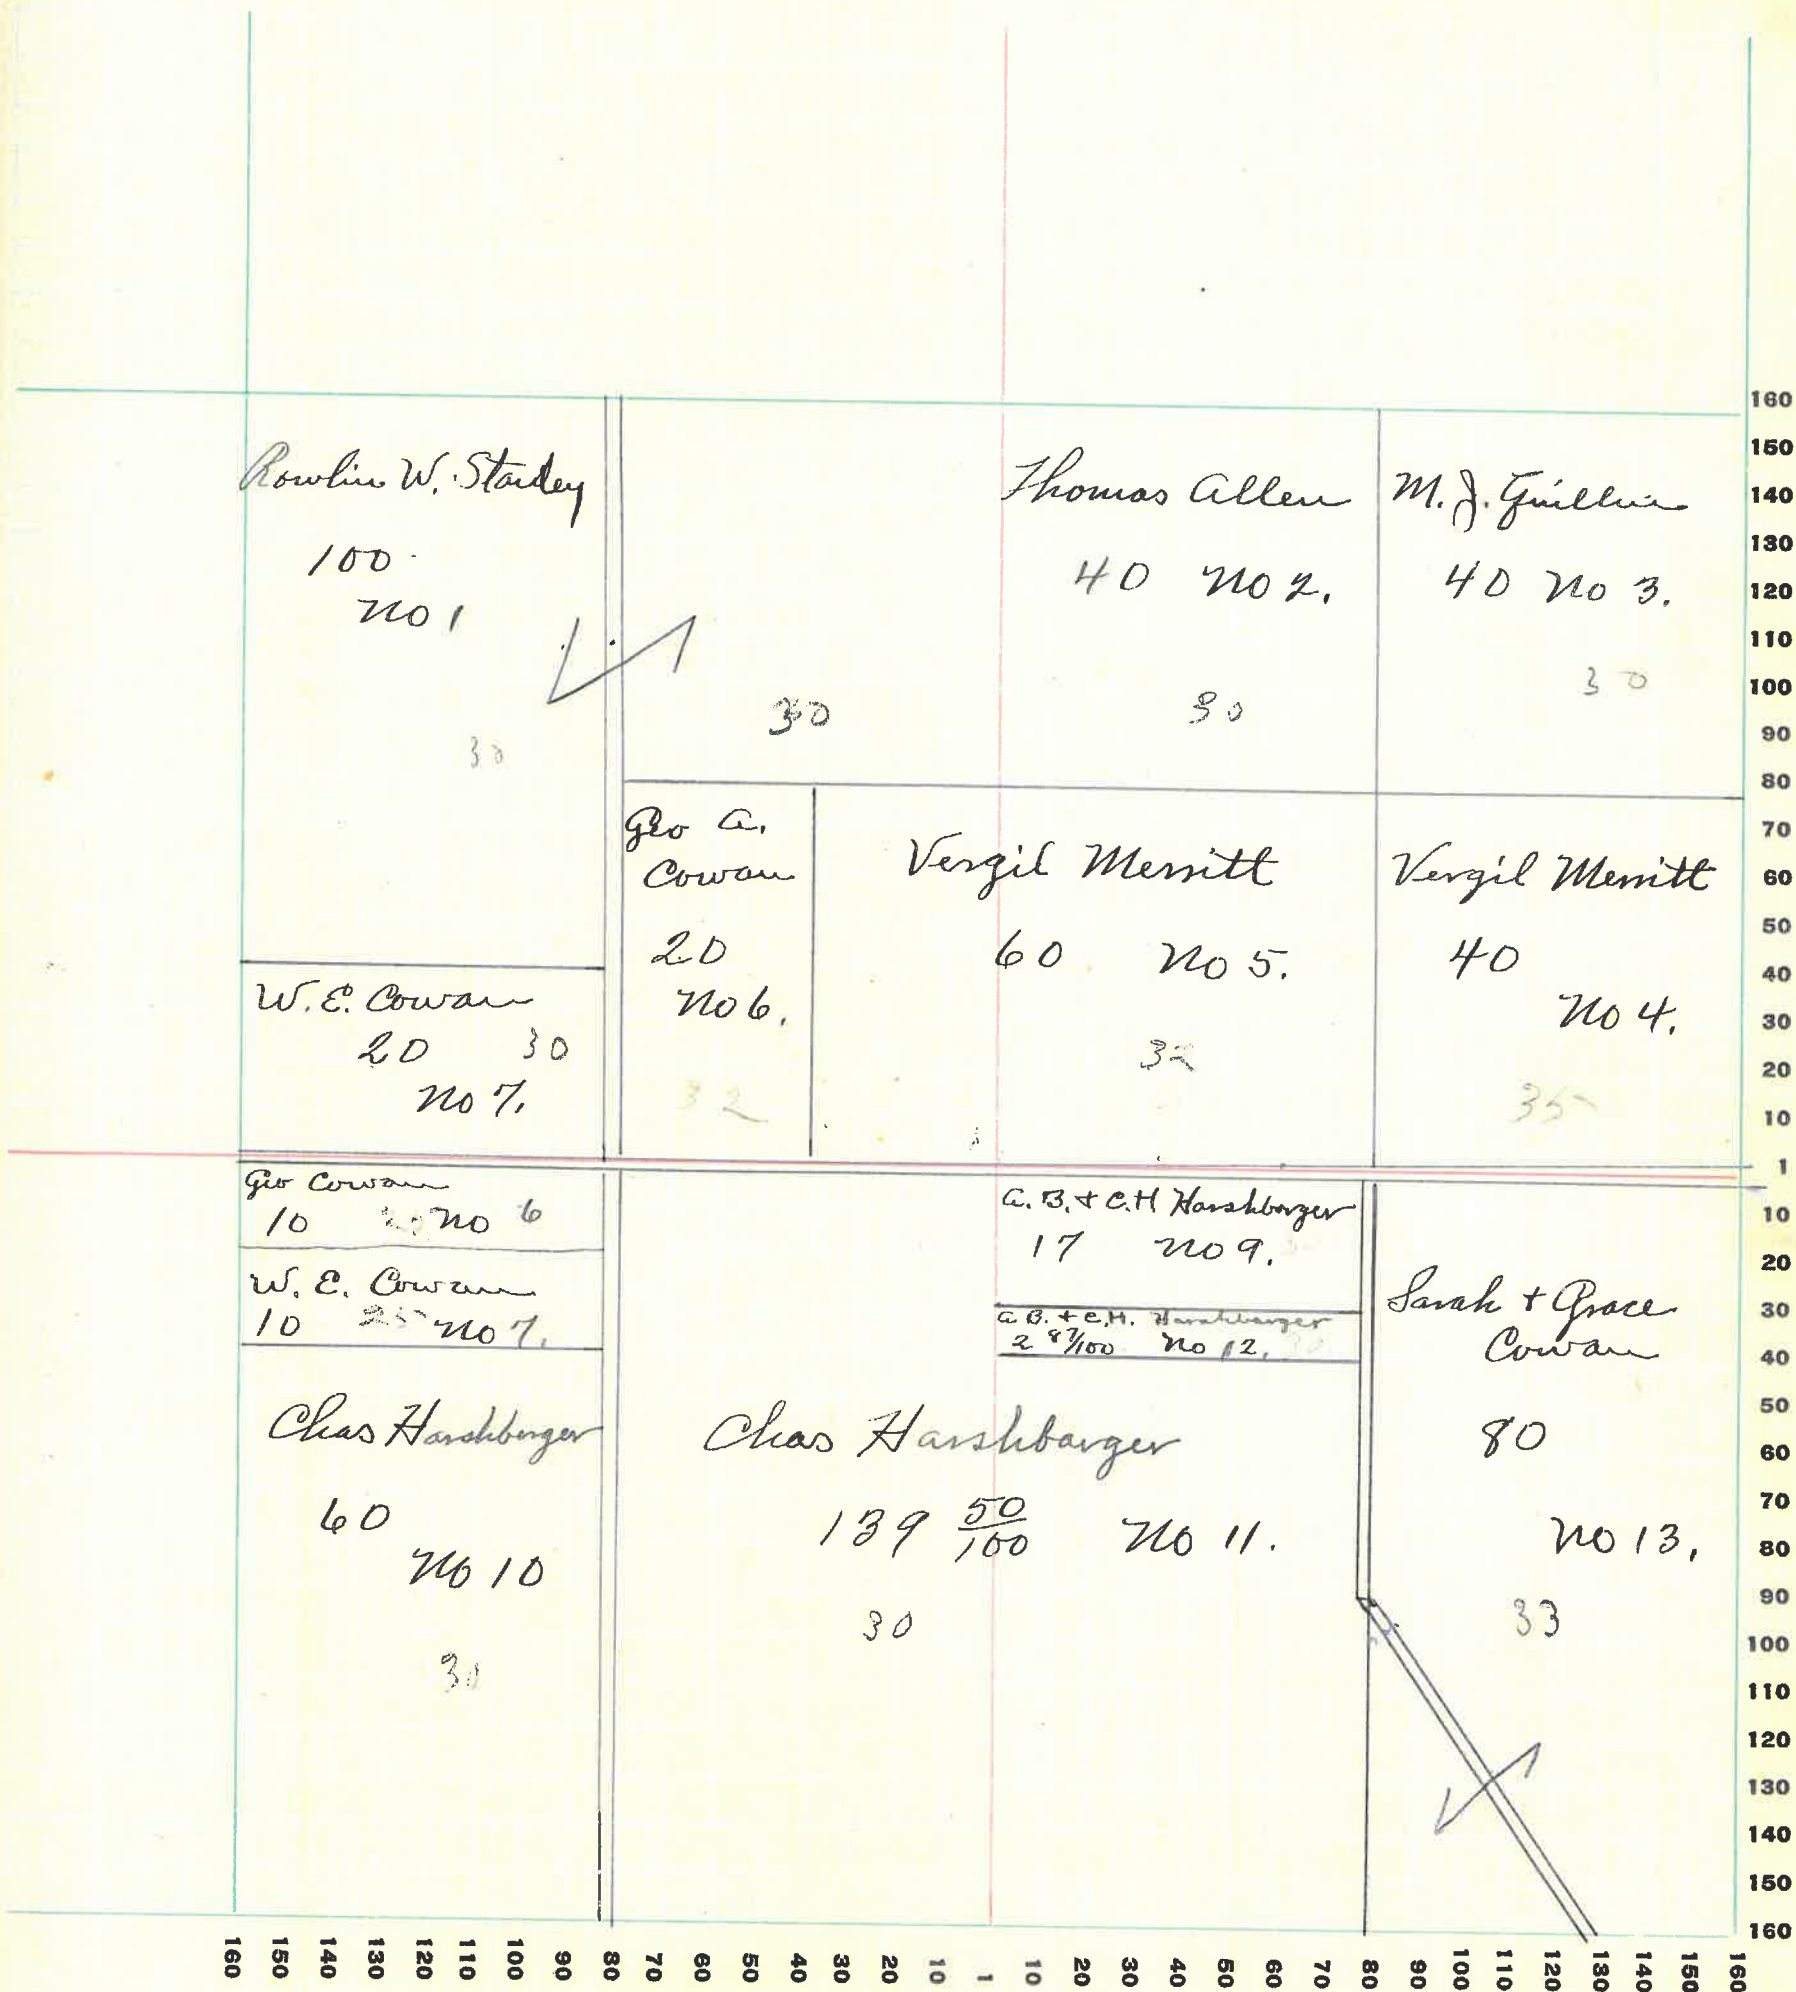 Rowlin W. Stanley
100
no 1
30
30
Thomas Allen
40 no 2.
30
M. J.
40 no 3.
30
Geo A.
Cowan
20
no 6.
32
Vergil Merritt
60 no 5.
32
Vergil Merritt
40
no 4.
35
W. E. Cowan
20 30
no 7.
Geo Cowan
10 no 6
W. E. Cowan
10 25 no 7.
Chas Harshbarger
60
no 10
30
A. B. + C. H Harshbarger
17 no 9.
A. B. + C. H. Harshbarger
2 87/100 no 12.
Chas Harshbarger
139 50/100 no 11.
30
Sarah + Grace
Cowan
80
no 13.
33
160
150
140
130
120
110
100
90
80
70
60
50
40
30
20
10
1
10
20
30
40
50
60
70
80
90
100
110
120
130
140
150
160
160 150 140 130 120 110 100 90 80 70 60 50 40 30 20 10 1 10 20 30 40 50 60 70 80 90 100 110 120 130 140 150 160